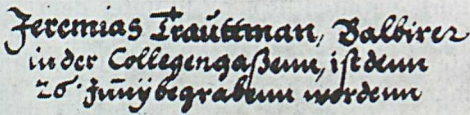 Jeremias Trauttman, Balbirer
in der Collegengaßenn, ist denn
26. Junÿ begrabenn wordenn